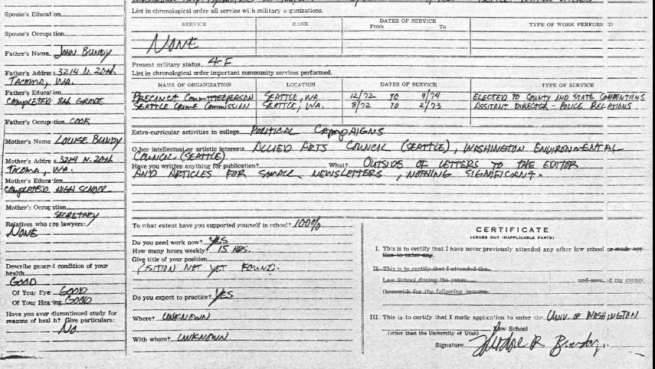 Spouse's Education
List in chronological order all service with military organizations.
SERVICE RANK DATES OF SERVICE TYPE OF WORK PERFORMED
From To
Spouse's Occupation
NONE
Father's Name, JOHN BUNDY
Present military status. 4-F
Father's Address 3214 N. 20th
TACOMA, WA.
List in chronological order important community services performed.
NAME OF ORGANIZATION LOCATION DATES OF SERVICE TYPE OF SERVICE
Father's Education
COMPLETED GRADE
PRECINCT COMMITTEEPERSON SEATTLE, WA. 12/72 TO 9/74 ELECTED TO COUNTY AND STATE CONVENTIONS
SEATTLE CRIME COMMISSION SEATTLE, WA. 8/72 TO 2/73 ASSISTANT DIRECTOR - POLICE RELATIONS
Father's Occupation COOK
Extra-curricular activities in college. POLITICAL CAMPAIGNS
Mother's Name LOUISE BUNDY
Other intellectual or artistic interests. ALLIED ARTS COUNCIL (SEATTLE), WASHINGTON ENVIRONMENTAL
COUNCIL (SEATTLE)
Mother's Address 3214 N. 20th
TACOMA, WA.
Have you written anything for publication? What? OUTSIDE OF LETTERS TO THE EDITOR
AND ARTICLES FOR SMALL NEWSLETTERS, NOTHING SIGNIFICANT.
Mother's Education
COMPLETED HIGH SCHOOL
Mother's Occupation
SECRETARY
Relatives who are lawyers:
NONE
Describe general condition of your
health
GOOD
Of Your Eyes GOOD
Of Your Hearing GOOD
Have you ever discontinued study for
reasons of health? Give particulars:
No.
To what extent have you supported yourself in school? 100%
Do you need work now? YES
How many hours weekly? 15 HRS.
Give title of your position
POSITION NOT YET FOUND.
Do you expect to practice? YES
Where? UNKNOWN
With whom? UNKNOWN
CERTIFICATE
(CROSS OUT INAPPLICABLE PARTS)
I. This is to certify that I have never previously attended any other law school or made application to enter any.
II. This is to certify that I attended the
Law School during the years and
III This is to certify that I made application to enter the UNIV. OF WASHINGTON
(other than the University of Utah) Law School
Signature Theodore R. Bundy